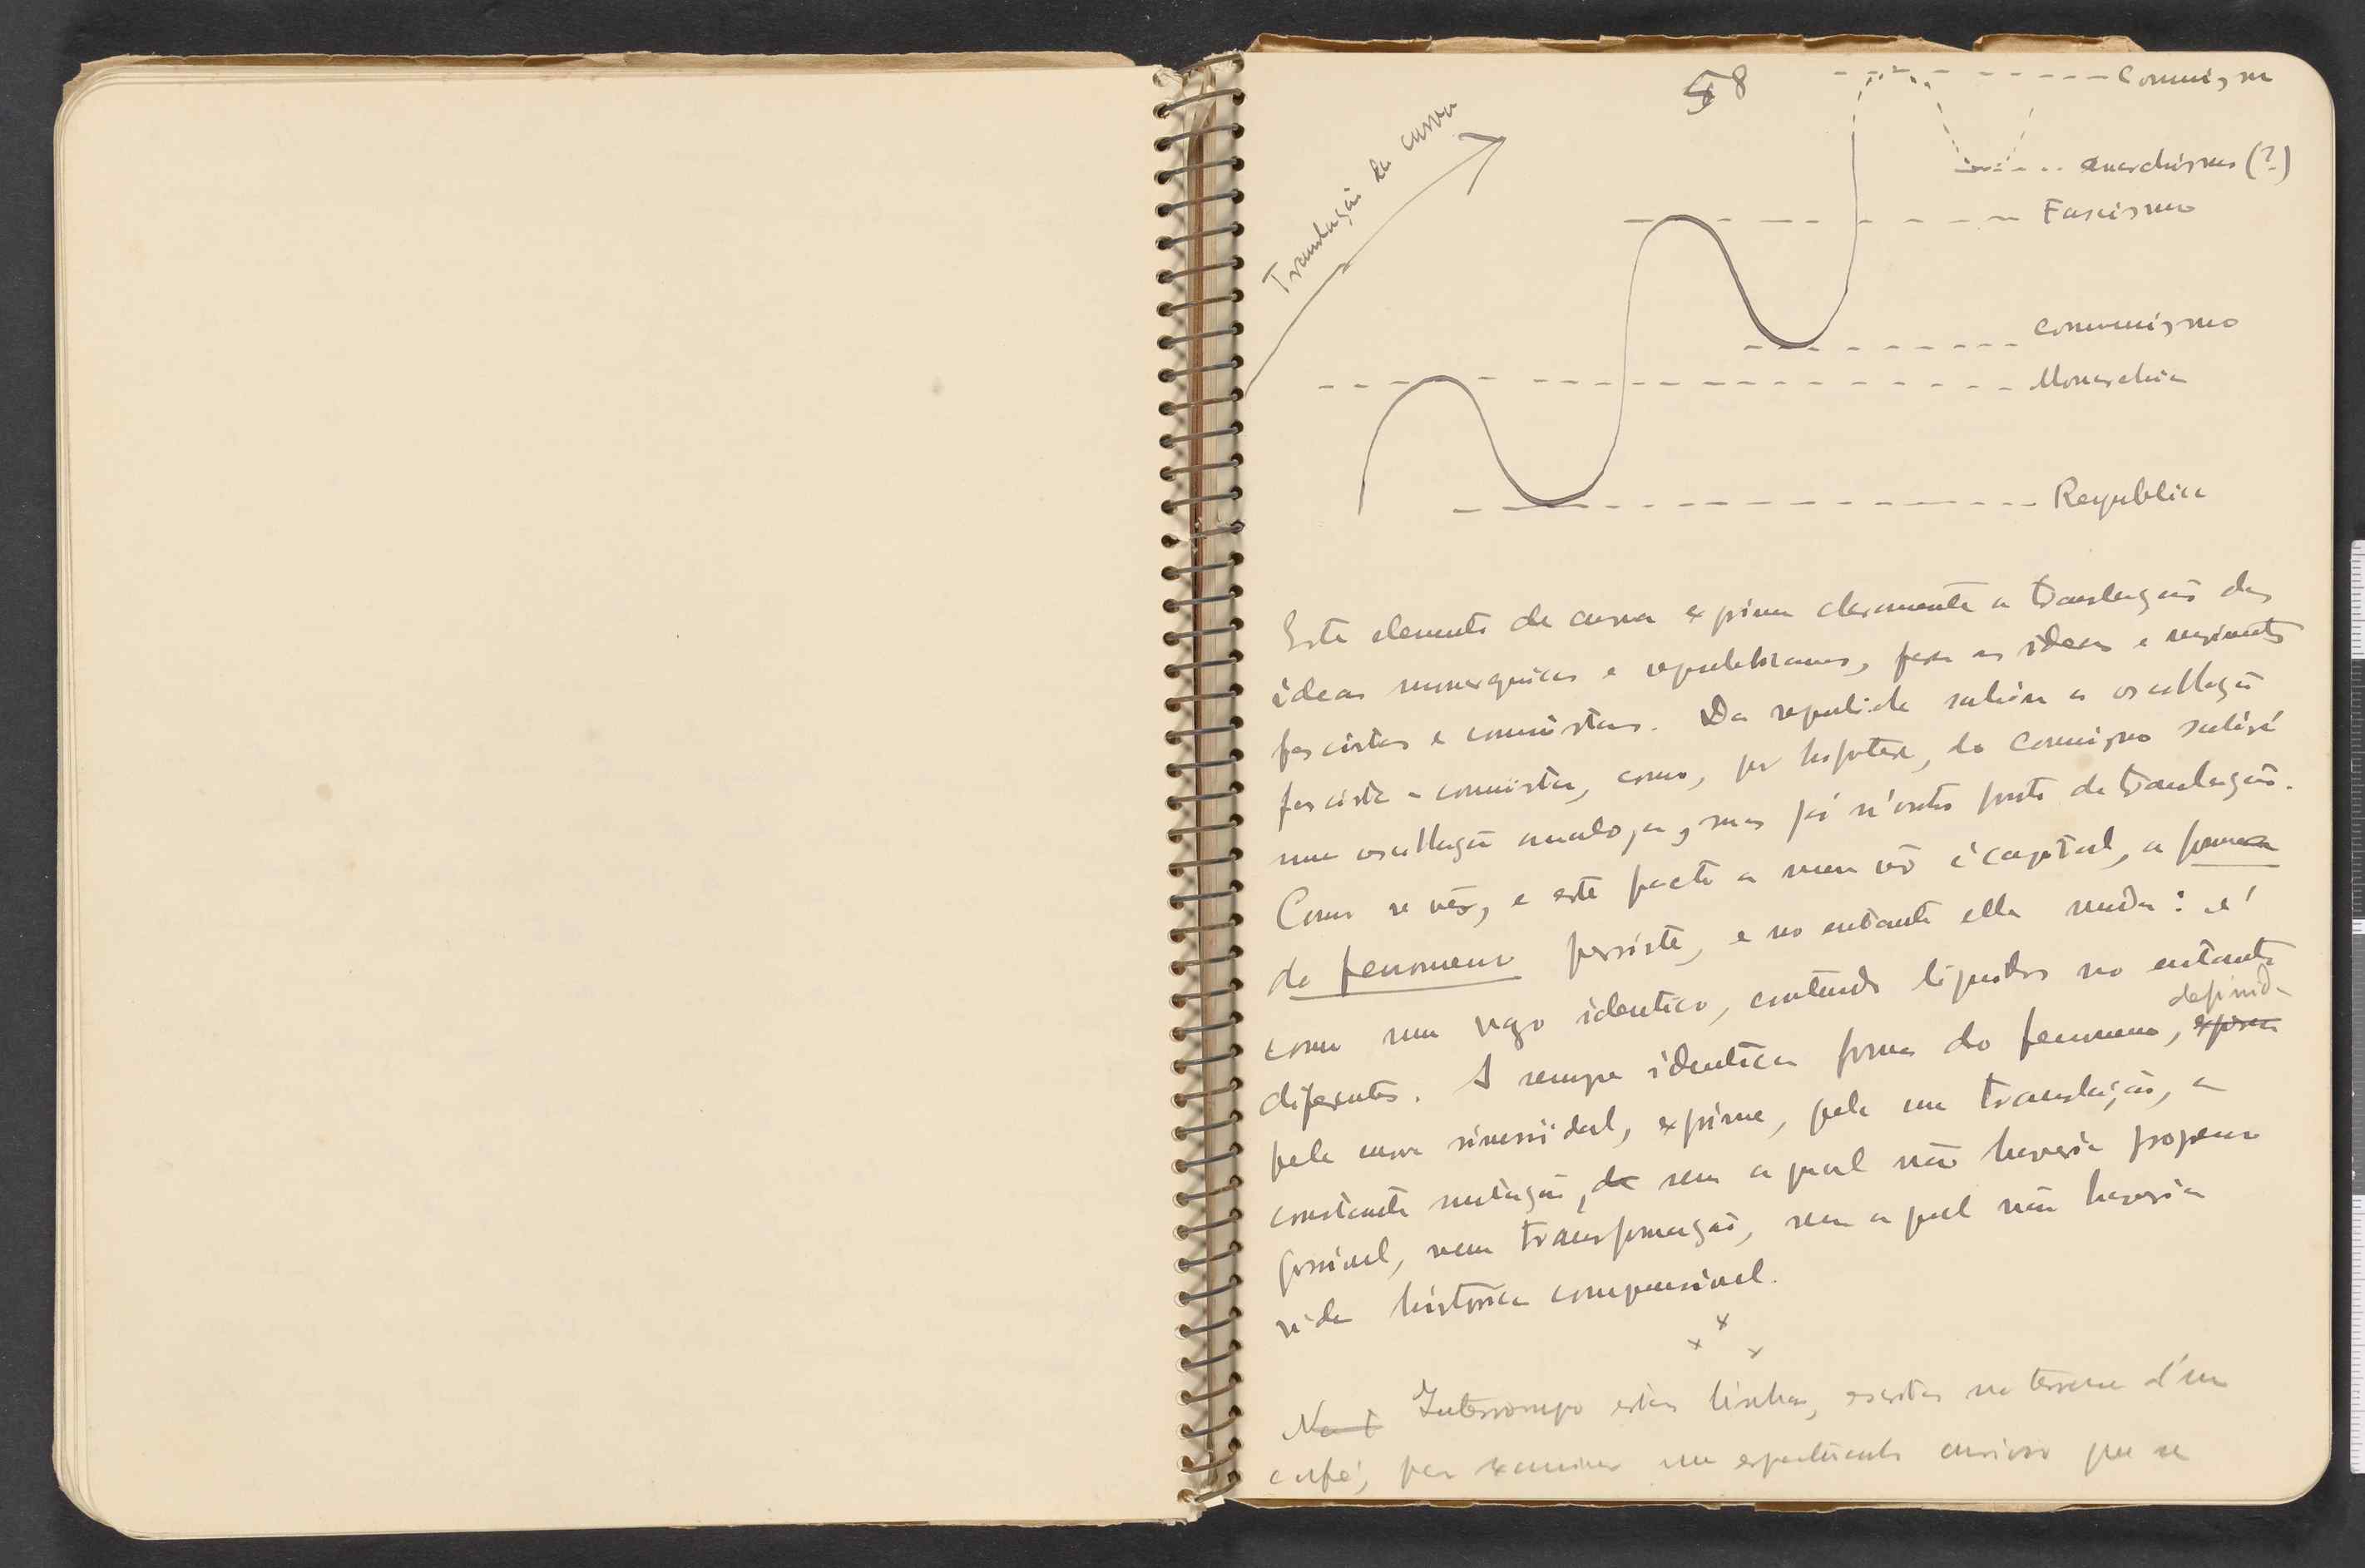 58
Comunismo
Translação da curva
anarchismo (?)
Fascismo
comunismo
Monarchia
Republica
Este elemento de curva exprime claramente a translação das
ideas monarquicas e republicanas, para as ideas e
fascistas e comunistas. Da republica sahiu a oscillação
fascista-comunista, como, por hipotese, do comunismo sahirá
uma oscillação analoga, mas já n'outro ponto de translação.
Como se vê, e este facto a meu vêr é capital, a forma
do fenomeno persiste, e no entanto ella muda: é
como um vaso identico, contendo liquidos no entanto
diferentes. A sempre identica forma do fenomeno, definida
pela curva sinusoidal, exprime, pela sua translação, a
constante mutação, sem a qual não haveria progresso
possivel, nem transformação, sem a qual não haveria
vida historica compreensivel.
x x x
Interrompo estas linhas, escritas no terrasse d'um
café, para examinar um espectaculo curioso que se